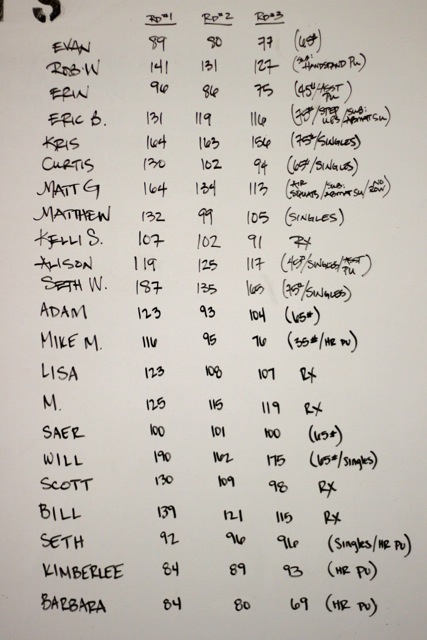 RD#1 RD#2 RD#3
EVAN 89 80 77 (65#)
ROB W 141 131 127 (SUB: HANDSTAND PU)
ERIN 96 86 75 (45#/ASST PU)
ERIC B. 131 119 116 (75#/STEP UPS/SUB: ABMAT SU)
KRIS 164 163 156 (75#/SINGLES)
CURTIS 130 102 94 (65#/SINGLES)
MATT G 164 134 113 (AIR SQUATS/SUB: ABMAT SU/NO ROW)
MATTHEW 132 99 105 (SINGLES)
KELLI S. 107 102 91 RX
ALISON 119 125 117 (45#/SINGLES/ASST PU)
SETH W. 187 135 165 (75#/SINGLES)
ADAM 123 93 104 (65#)
MIKE M. 116 95 76 (35#/HR PU)
LISA 123 108 107 RX
M. 125 115 119 RX
SAER 100 101 100 (65#)
WILL 190 162 175 (65#/Singles)
SCOTT 130 109 98 RX
BILL 139 121 115 RX
SETH 92 96 96 (Singles/HR PU)
KIMBERLEE 84 89 93 (HR PU)
BARBARA 84 80 69 (HR PU)